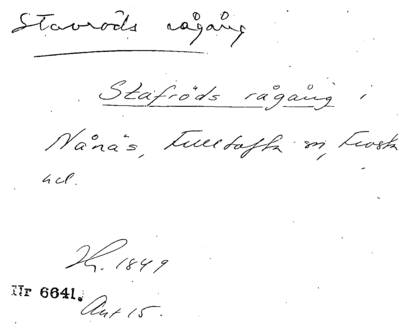 Stavröds rågång
Stafröds rågång i
Nånäs, Fulltofta sn, Frosta
hd.
Hr. 1849
Nr 6641.
Akt 15.